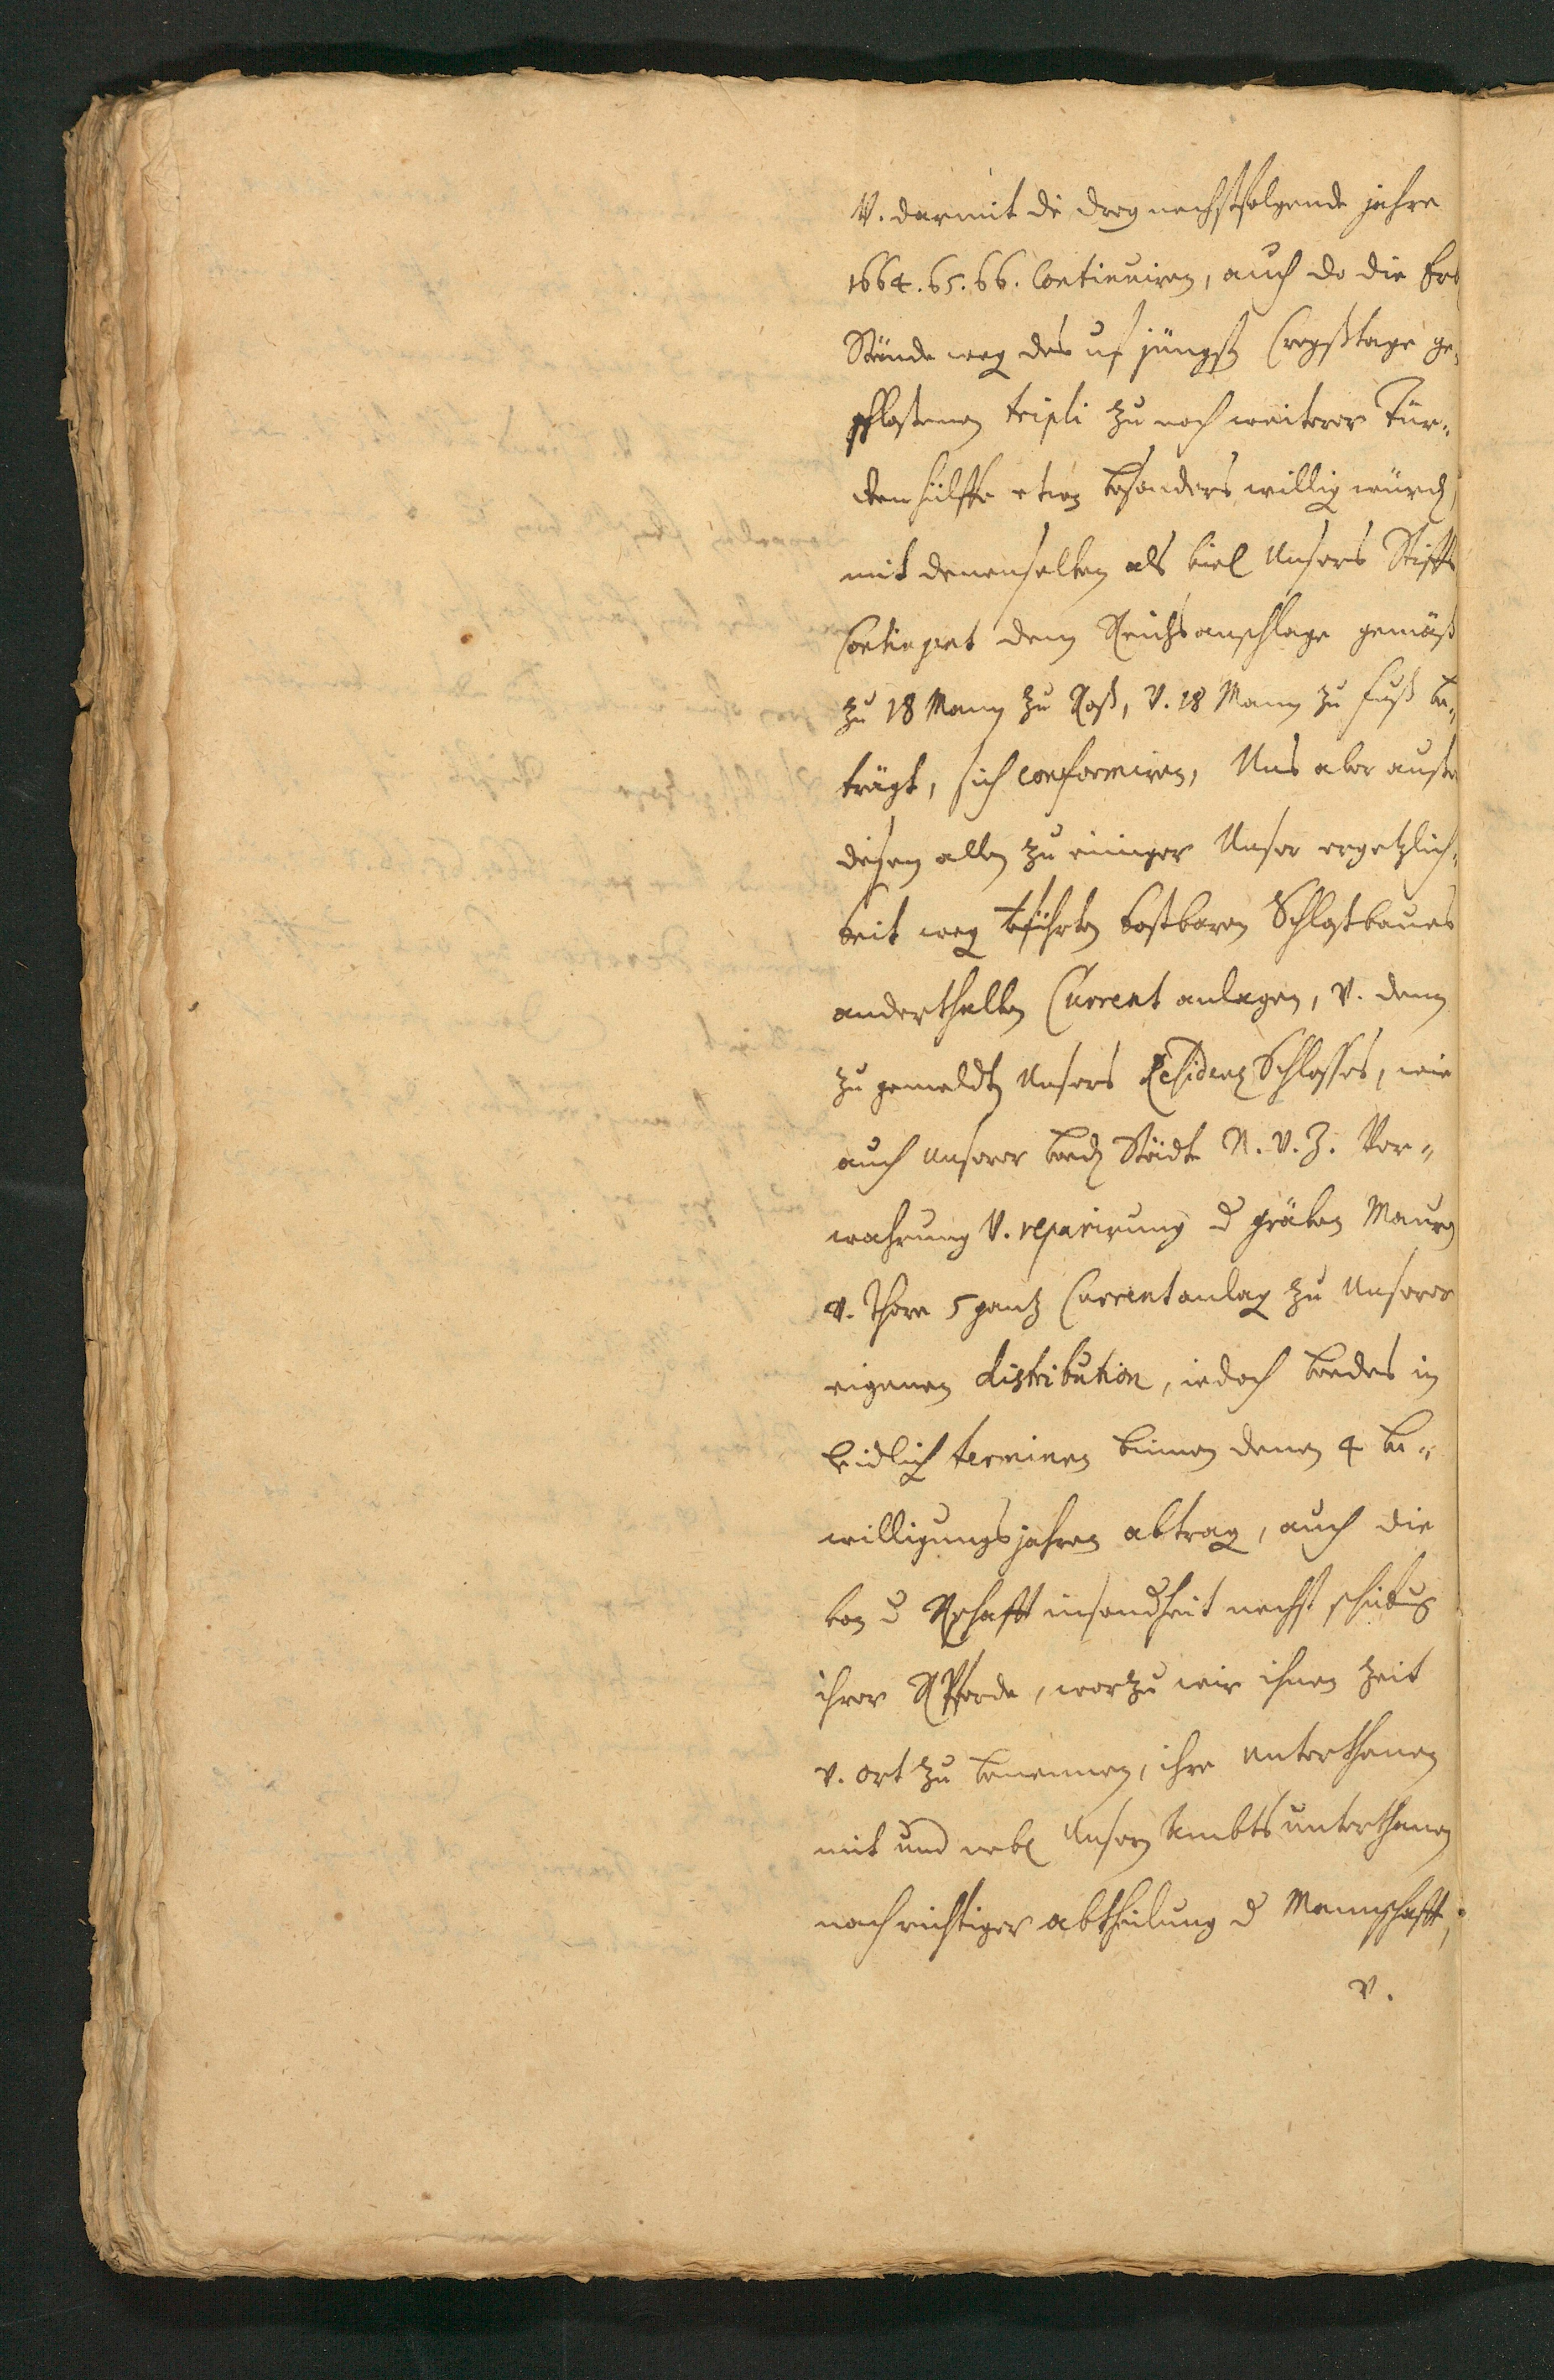 V. darmit die drey nechstfolgende jahre
1664. 65. 66. Continuiren, auch do die
Stände weg des uf jüngst Creyßtage ge-
schloßenen tripli zu noch weiterer Tür-
ckenhülffe etwz besonders willig würd,
mit denenselben als viel Unsers Stiffts
Contingent dem Reichsanschlage gemäß
zu 18 Mann zu Roß, V. 18 Mann zu fuß be-
trägt, sich conformiren, Uns aber auße
diesem allen zu einiger Unser ergetzlich-
keit weg kostbaren Schloßbaues
anderthalben Current anlagen, V. denn
zu gemeldten Unsers Residenz Schlosses, wie
auch unserer beed Städte N. V. Z. Ver-
wahrung V. reparirung d gräben Mauren
V. Thore 5 gantz Current anlag zu Unserer
eigenen distribution, iedoch beedes in
leidlich terminen binnen denen 4 be-
willigungsjahren abtrag, auch die
von d Rschafft insondheit nechst schickung
ihrer R Pferde, worzu wir ihnen Zeit
V. ort zu benennen, ihre unterthanen
mit und nebl Unsern Ambtsunterthanen
nach richtiger abtheilung d Mannschafft,
V.